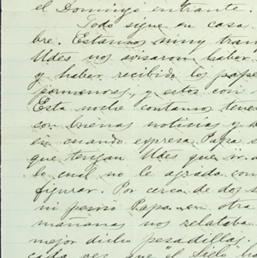 el Domingo entrante.
Todo sigue en casa
bre. Estamos muy tran
Udes nos avisaron haber
y haber recibido los pape
pormenores, y estos con
Esta noche contamos tener
son buenas noticias y
en cuando expresa Papa
que tengan Udes que
lo cual no le agrada con
figurar. Por cerca de dos
ni previo Papa en otra
mañanas nos relataba
mejor dicho pesadillas
cada vez que el